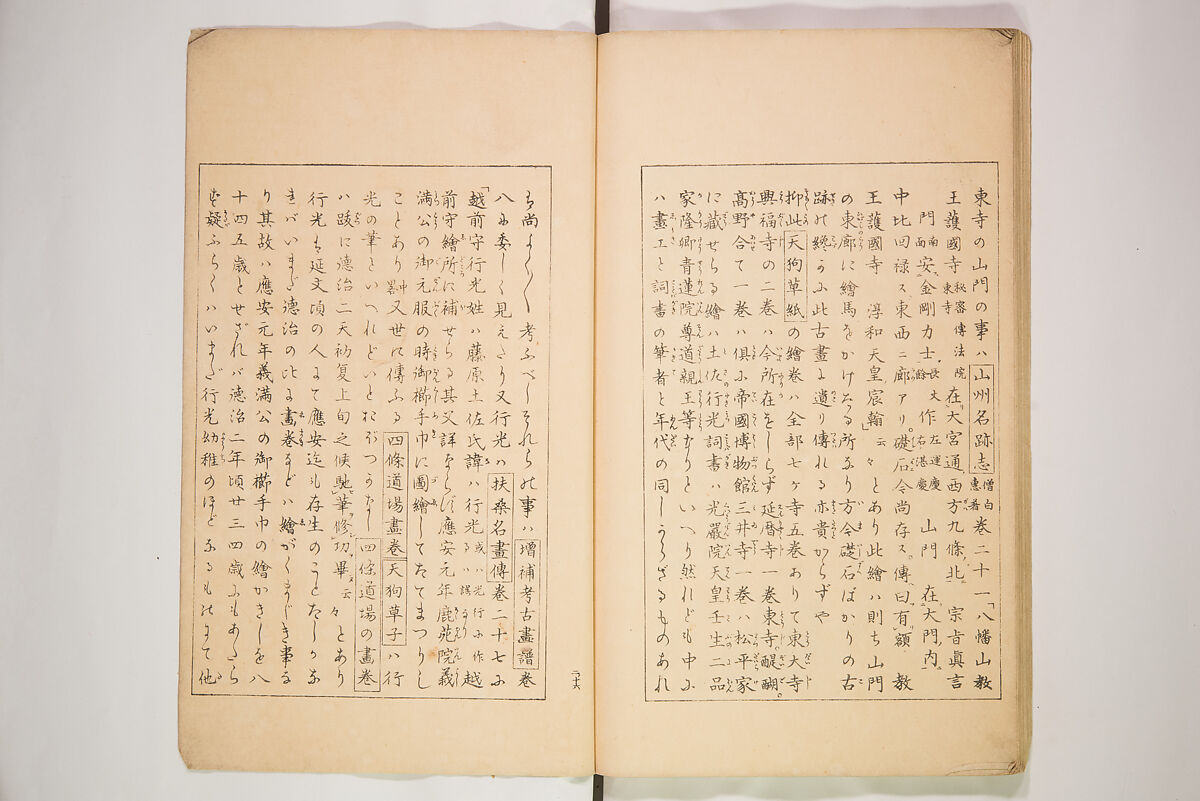 東寺の山門の事ハ山州名跡志僧白惠著巻二十一「八幡山教
王護國寺秘密傳法院東寺在大宮通西方九條北 宗旨眞言
門南面安金剛力士長丈餘作左運慶右湛慶 山門 在大門内
中比回禄ス東西ニ廊アリ礎石今尚存ス傳曰有額 教
王護國寺 淳和天皇宸翰」云々とあり此繪ハ則ち山門
の東廊に繪馬をかけたる所なり方今礎石ばかりの古
跡の終りに此古畫に遺り傳れる亦貴からずや
抑此天狗草紙の繪巻ハ全部七ヶ寺五巻ありて東大寺
興福寺の二巻ハ今所在をしらず延暦寺一巻東寺醍醐
髙野合て一巻ハ倶に帝國博物館三井寺一巻ハ松平家
に藏せらる繪ハ土佐行光詞書ハ光嚴院天皇壬生二品
家隆卿青蓮院尊道親王等なりといへり然れども中に
ハ畫工と詞書の筆者と年代の同しからざるものあれ
ば尚よく〳〵考ふべしそれらの事ハ増補考古畫譜巻
八に委しく見えたり又行光ハ扶桑名畫傳巻二十七に
「越前守行光姓ハ藤原土佐氏諱ハ行光或ハ光行に作るハ誤なり越
前守繪所に補せらる其父詳ならず應安元年鹿苑院義
満公の御元服の時御櫛手巾に圖繪してたてまつりし
ことあり中畧又世に傳ふる四條道場畫巻天狗草子ハ行
光の筆といへれどいとおぼつかなし四條道場の畫巻
ハ跋に徳治二天初夏上旬之候馳筆修功畢云々とあり
行光は延文頃の人にて應安迄も存生のことたしかな
ればいまだ徳治の比は畫巻などハ繪がくまじき事な
り其故ハ應安元年義満公の御櫛手巾の繪かきしを八
十四五歳とせざれバ徳治二年頃廿三四歳にもあたら
ず疑ふらくハいまだ行光幼稚のほどなるものにて他
二十六